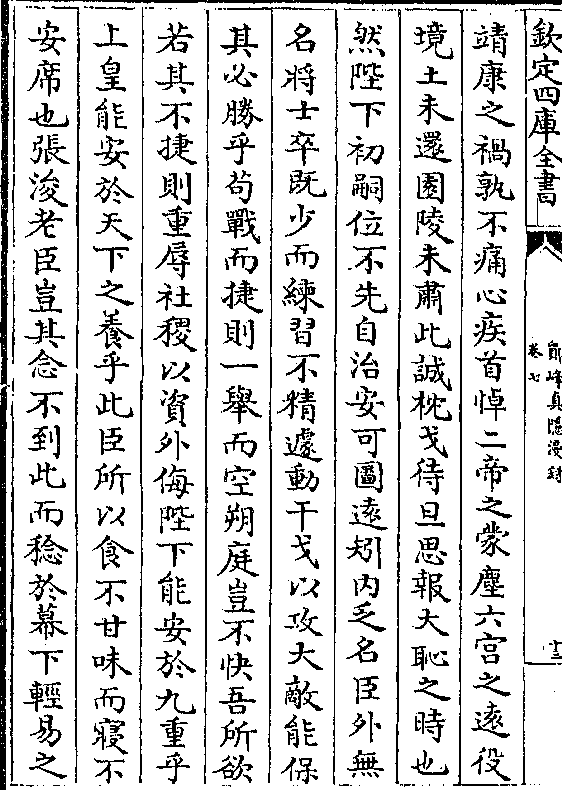 欽定四庫全書
鄮峰真隱漫錄
卷七
十三
靖康之禍孰不痛心疾首悼二帝之蒙塵六宮之遠役
境土未還園陵未肅此誠枕戈待旦思報大恥之時也
然陛下初嗣位不先自治安可圖遠矧内乏名臣外無
名將士卒既少而練習不精遽動干戈以攻大敵能保
其必勝乎苟戰而捷則一舉而空朔庭豈不快吾所欲
若其不捷則重辱社稷以資外侮陛下能安於九重乎
上皇能安於天下之養乎此臣所以食不甘味而寢不
安席也張浚老臣豈其念不到此而稔於幕下輕易之